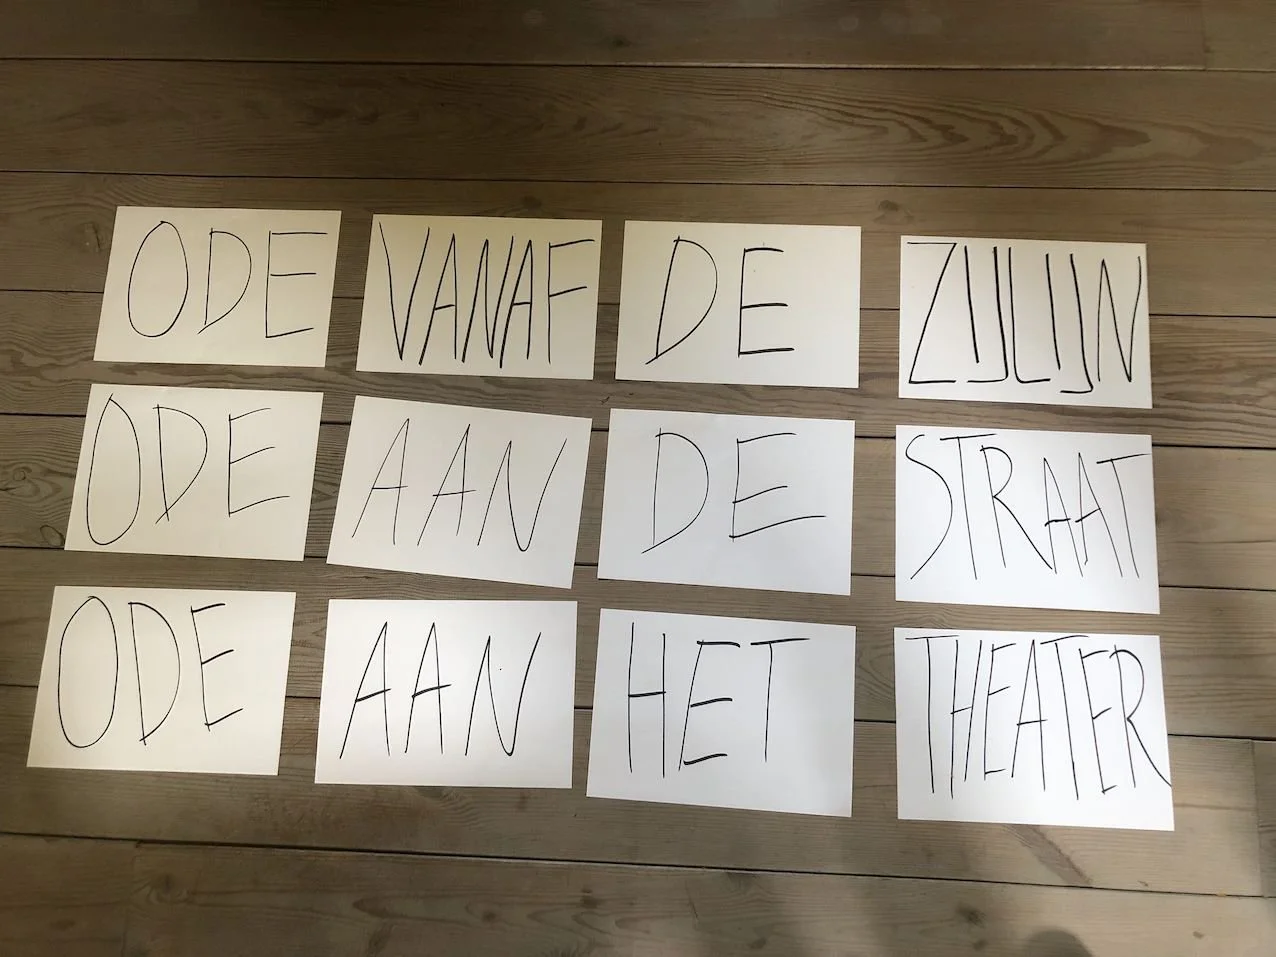 ODE VANAF DE ZIJLIJN
ODE AAN DE STRAAT
ODE AAN HET THEATER